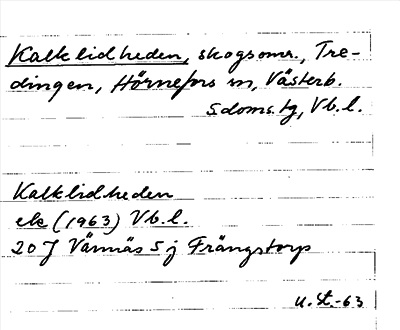 Kalklidheden, skogsomr., Tre-
dingen, Hörnefors sn, Västerb.
s. doms. tg, Vb. l.
Kalklidheden
ek (1963) Vb. l.
20 J Vännäs S j Frängstorp
U. St. -63